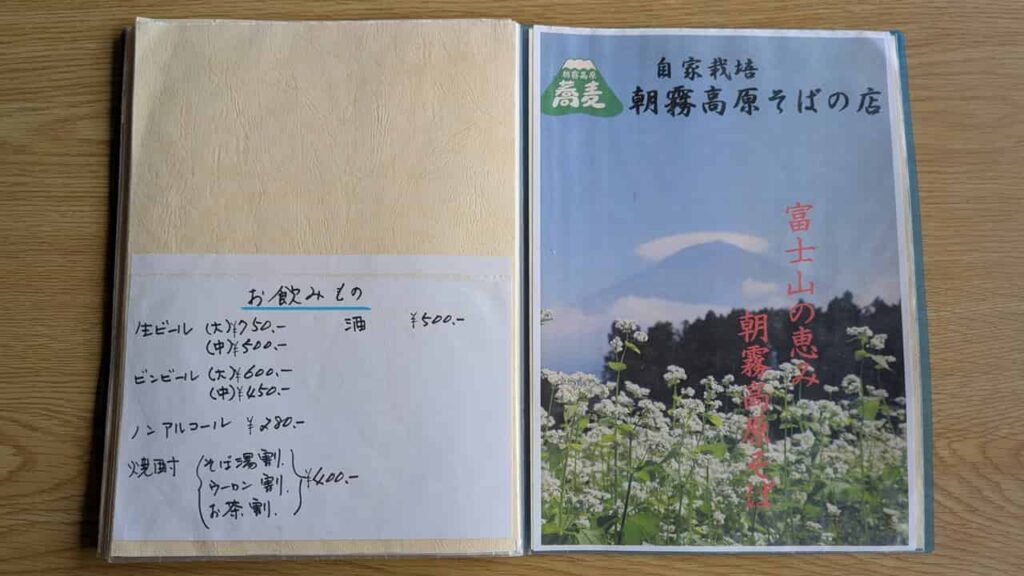 お飲みもの
生ビール (大)¥750.-
(中)¥500.-
酒 ¥500.-
ビンビール (大)¥600.-
(中)¥450.-
ノンアルコール ¥280.-
焼酎 そば湯割.
ウーロン割.
お茶割.
¥400.-
朝霧高原
蕎麦
自家栽培
朝霧高原そばの店
富士山の恵み
朝霧高原そば